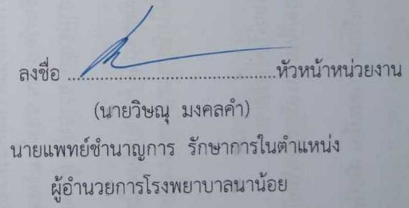 ลงชื่อ ........................................หัวหน้าหน่วยงาน
(นายวิษณุ มงคลคำ)
นายแพทย์ชำนาญการ รักษาการในตำแหน่ง
ผู้อำนวยการโรงพยาบาลนาน้อย